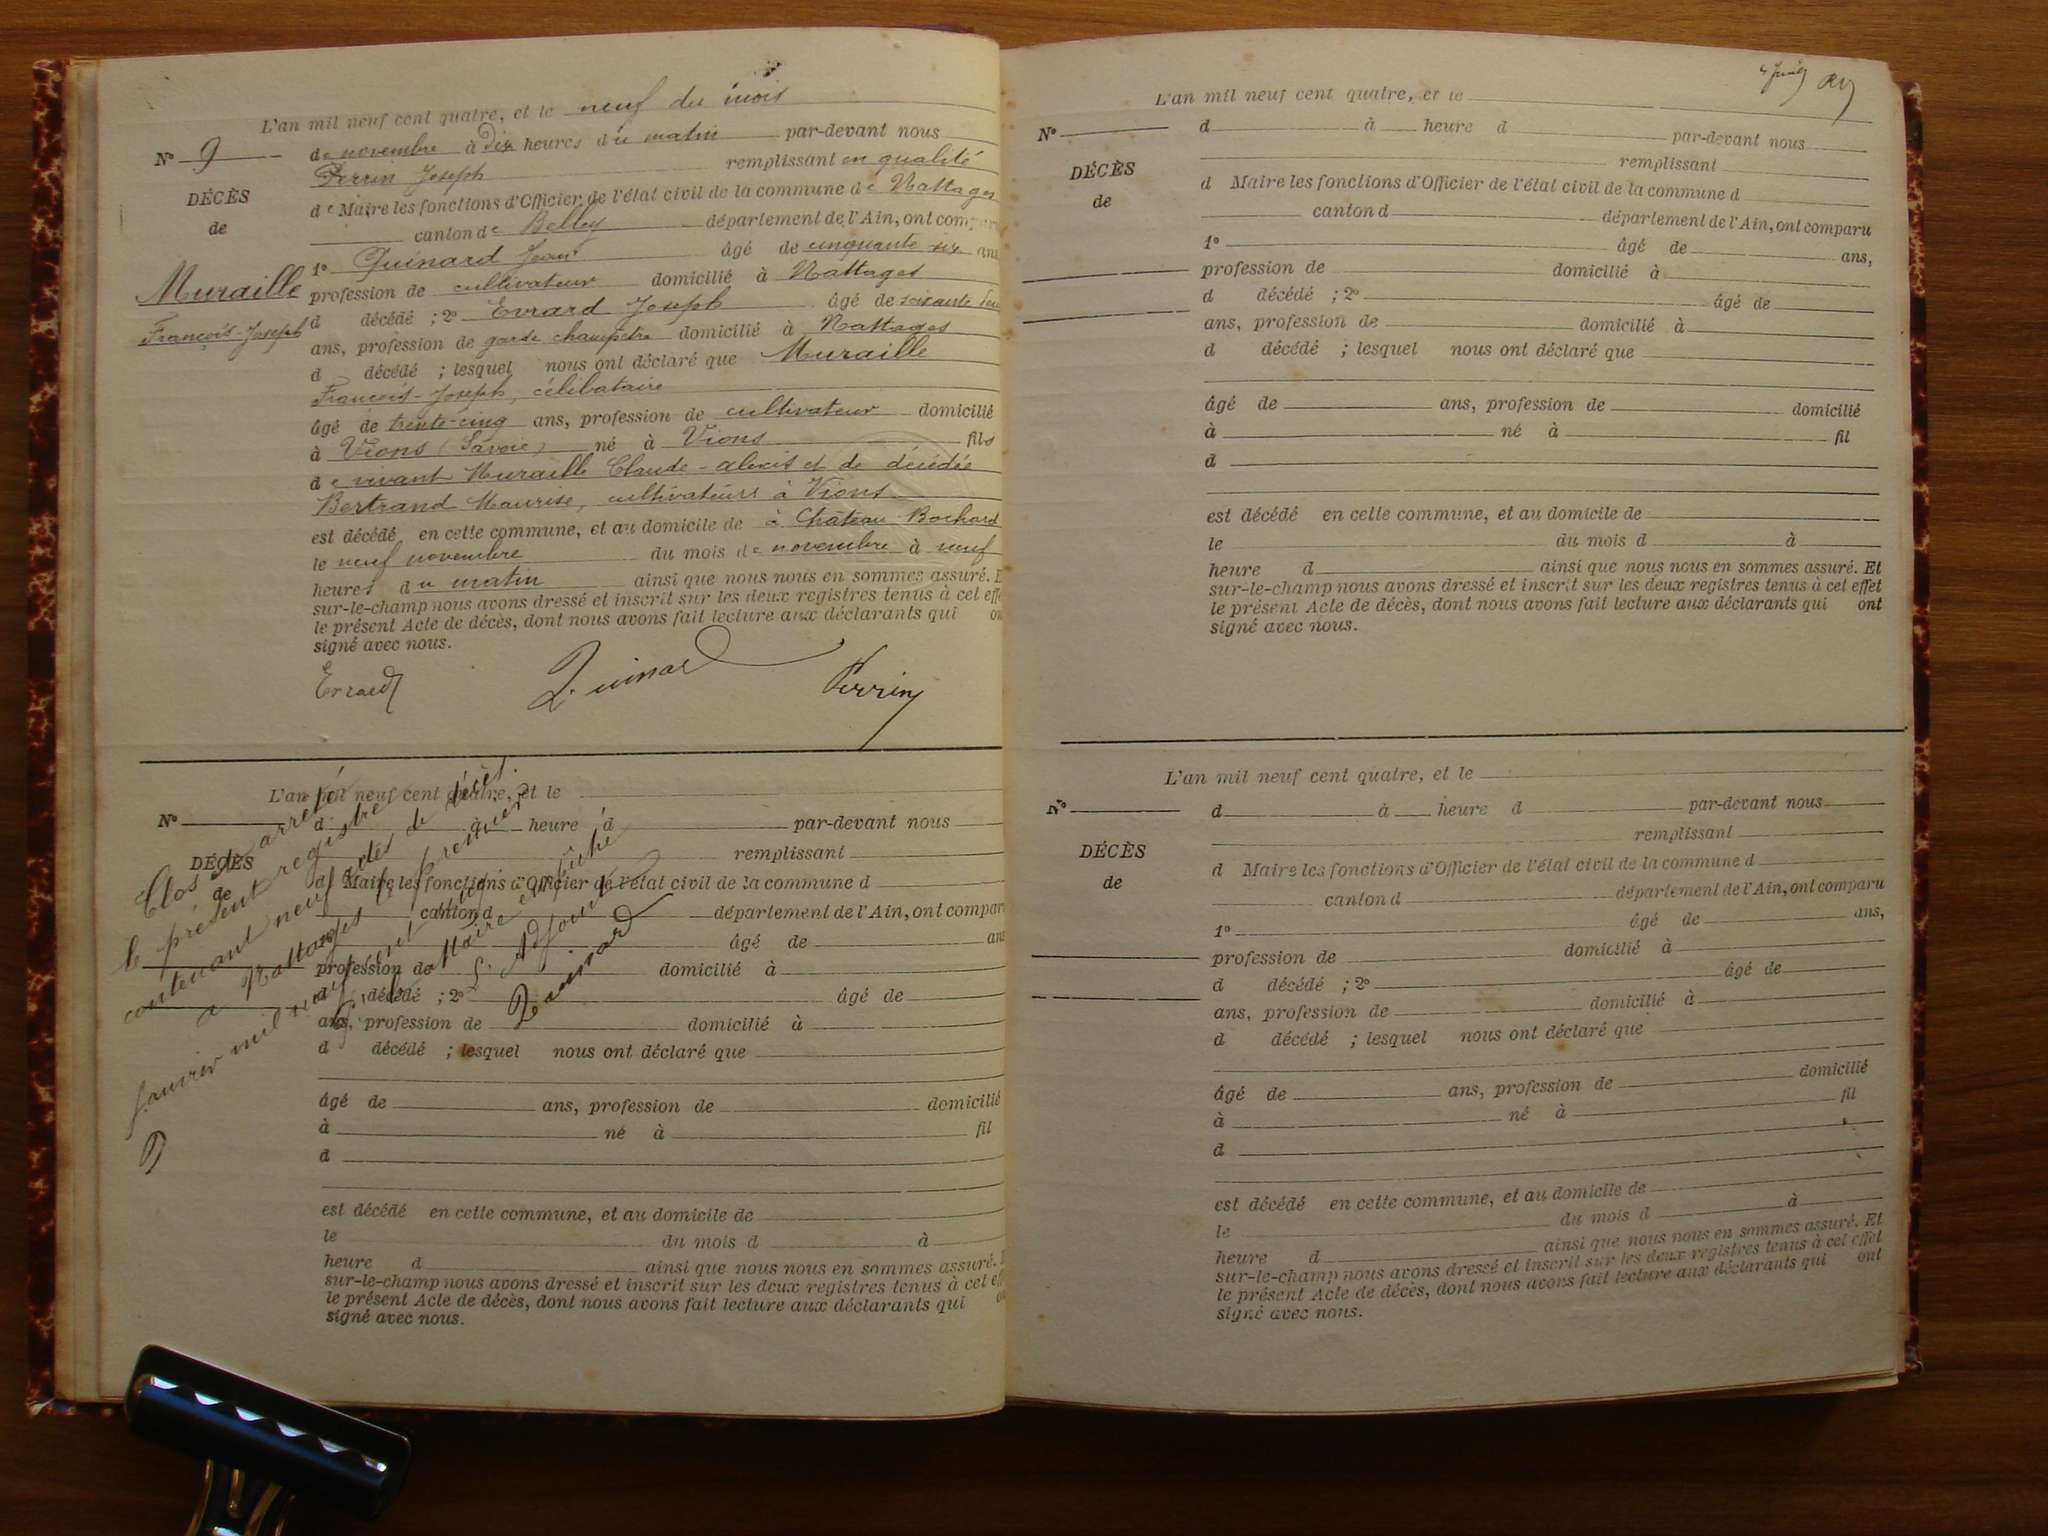 L'an mil neuf cent quatre, et le neuf du mois
N° 9
de novembre à dix heures du matin par-devant nous
Perrin Joseph remplissant en qualité
DÉCÈS
de Maire les fonctions d'Officier de l'état civil de la commune de Nattages
de
canton de Belley département de l'Ain, ont comparu
1° Quinard Jean âgé de cinquante six ans
Muraille
profession de cultivateur domicilié à Nattages
d décédé ; 2° Evrard Joseph âgé de soixante
François-Joseph
ans, profession de garde champêtre domicilié à Nattages
d décédé ; lesquel nous ont déclaré que Muraille
François-Joseph, célibataire
âgé de trente-cinq ans, profession de cultivateur domicilié
à Vions (Savoie) né à Vions fils
de vivant Muraille Claude-alexis et de décédée
Bertrand Maurise, cultivateurs à Vions
est décédé en cette commune, et au domicile de à Château Bochard
le neuf novembre du mois de novembre à neuf
heures du matin ainsi que nous nous en sommes assuré. E
sur-le-champ nous avons dressé et inscrit sur les deux registres tenus à cet effe
le présent Acte de décès, dont nous avons fait lecture aux déclarants qui on
signé avec nous.
Evrard Quinard Perrin
L'an mil neuf cent quatre, et le
N°
d à heure d par-devant nous
remplissant
DÉCÈS
d Maire les fonctions d'Officier de l'état civil de la commune d
de
canton d département de l'Ain, ont compar
1° âgé de ans
profession de domicilié à
d décédé ; 2° âgé de
ans, profession de domicilié à
d décédé ; lesquel nous ont déclaré que
âgé de ans, profession de domicilié
à né à fil
d
est décédé en cette commune, et au domicile de
le du mois d à
heure d ainsi que nous nous en sommes assuré. E
sur-le-champ nous avons dressé et inscrit sur les deux registres tenus à cet eff
le présent Acte de décès, dont nous avons fait lecture aux déclarants qui on
signé avec nous.
Clos et arreté
le présent registre
contenant neuf actes de décès.
a Nattages le premier
Janvier mil neuf cent cinq
P. le Maire empêché
L'Adjoint
Quinard
L'an mil neuf cent quatre, et le
N°
d à heure d par-devant nous
remplissant
DÉCÈS
d Maire les fonctions d'Officier de l'état civil de la commune d
de
canton d département de l'Ain, ont comparu
1° âgé de ans,
profession de domicilié à
d décédé ; 2° âgé de
ans, profession de domicilié à
d décédé ; lesquel nous ont déclaré que
âgé de ans, profession de domicilié
à né à fil
d
est décédé en cette commune, et au domicile de
le du mois d à
heure d ainsi que nous nous en sommes assuré. Et
sur-le-champ nous avons dressé et inscrit sur les deux registres tenus à cet effet
le présent Acte de décès, dont nous avons fait lecture aux déclarants qui ont
signé avec nous.
L'an mil neuf cent quatre, et le
N°
d à heure d par-devant nous
remplissant
DÉCÈS
d Maire les fonctions d'Officier de l'état civil de la commune d
de
canton d département de l'Ain, ont comparu
1° âgé de ans,
profession de domicilié à
d décédé ; 2° âgé de
ans, profession de domicilié à
d décédé ; lesquel nous ont déclaré que
âgé de ans, profession de domicilié
à né à fil
d
est décédé en cette commune, et au domicile de
le du mois d à
heure d ainsi que nous nous en sommes assuré. Et
sur-le-champ nous avons dressé et inscrit sur les deux registres tenus à cet effet
le présent Acte de décès, dont nous avons fait lecture aux déclarants qui ont
signé avec nous.